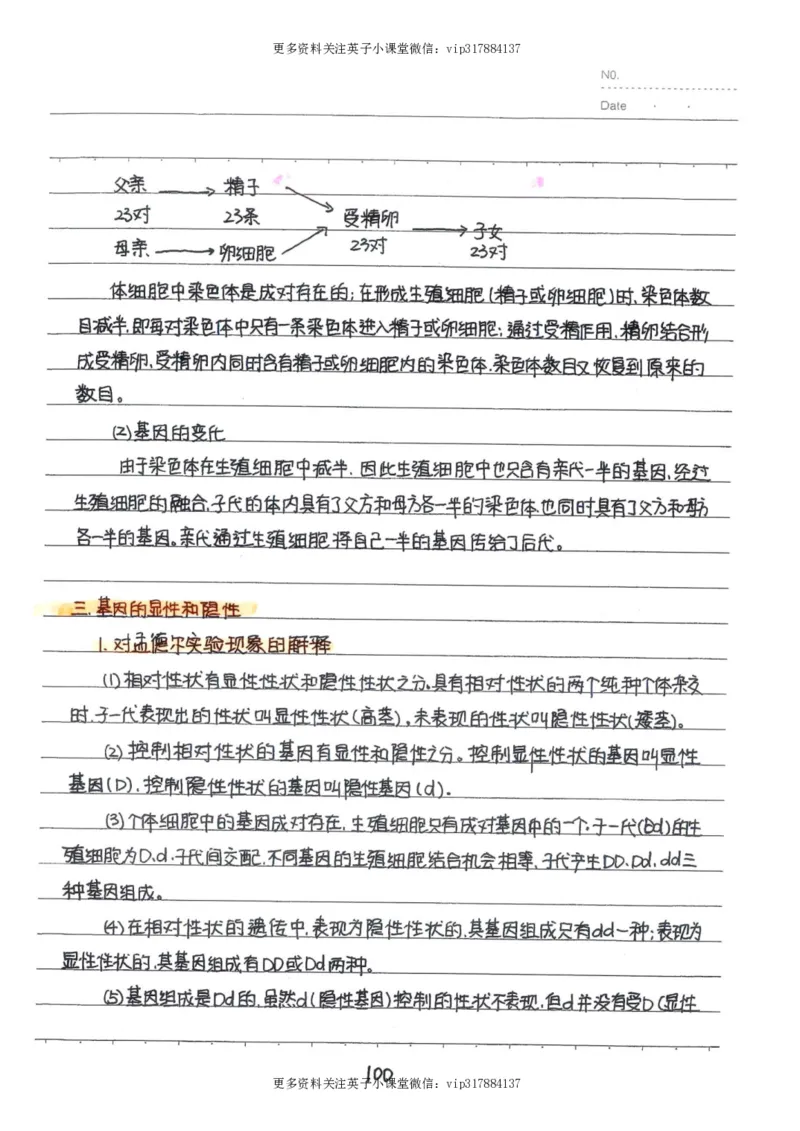 更多资料关注英子小课堂微信：vip317884137
NO.
Date
父亲 → 精子
23对 23条 受精卵 → 子女
母亲 → 卵细胞 23对 23对
体细胞中染色体是成对存在的；在形成生殖细胞(精子或卵细胞)时,染色体数
目减半,即每对染色体中只有一条染色体进入精子或卵细胞；通过受精作用,精卵结合形
成受精卵,受精卵内同时含有精子或卵细胞内的染色体.染色体数目又恢复到原来的
数目。
(2)基因的变化
由于染色体在生殖细胞中减半,因此生殖细胞中也只含有亲代一半的基因,经过
生殖细胞的融合,子代的体内具有了父方和母方各一半的染色体.也同时具有了父方和母方
各一半的基因。亲代通过生殖细胞将自己一半的基因传给了后代。
三.基因的显性和隐性
1.对孟德尔实验现象的解释
(1)相对性状有显性性状和隐性性状之分,具有相对性状的两个纯种个体杂交
时,子一代表现出的性状叫显性性状(高茎),未表现的性状叫隐性性状(矮茎)。
(2)控制相对性状的基因有显性和隐性之分。控制显性性状的基因叫显性
基因(D),控制隐性性状的基因叫隐性基因(d)。
(3)个体细胞中的基因成对存在,生殖细胞只有成对基因中的一个.子一代(Dd)的生
殖细胞为D、d.子代间交配,不同基因的生殖细胞结合机会相等,子代产生DD、Dd,dd三
种基因组成。
(4)在相对性状的遗传中,表现为隐性性状的,其基因组成只有dd一种；表现为
显性性状的,其基因组成有DD或Dd两种。
(5)基因组成是Dd的,虽然d(隐性基因)控制的性状不表现,但d并没有受D(显性
100
更多资料关注英子小课堂微信：vip317884137